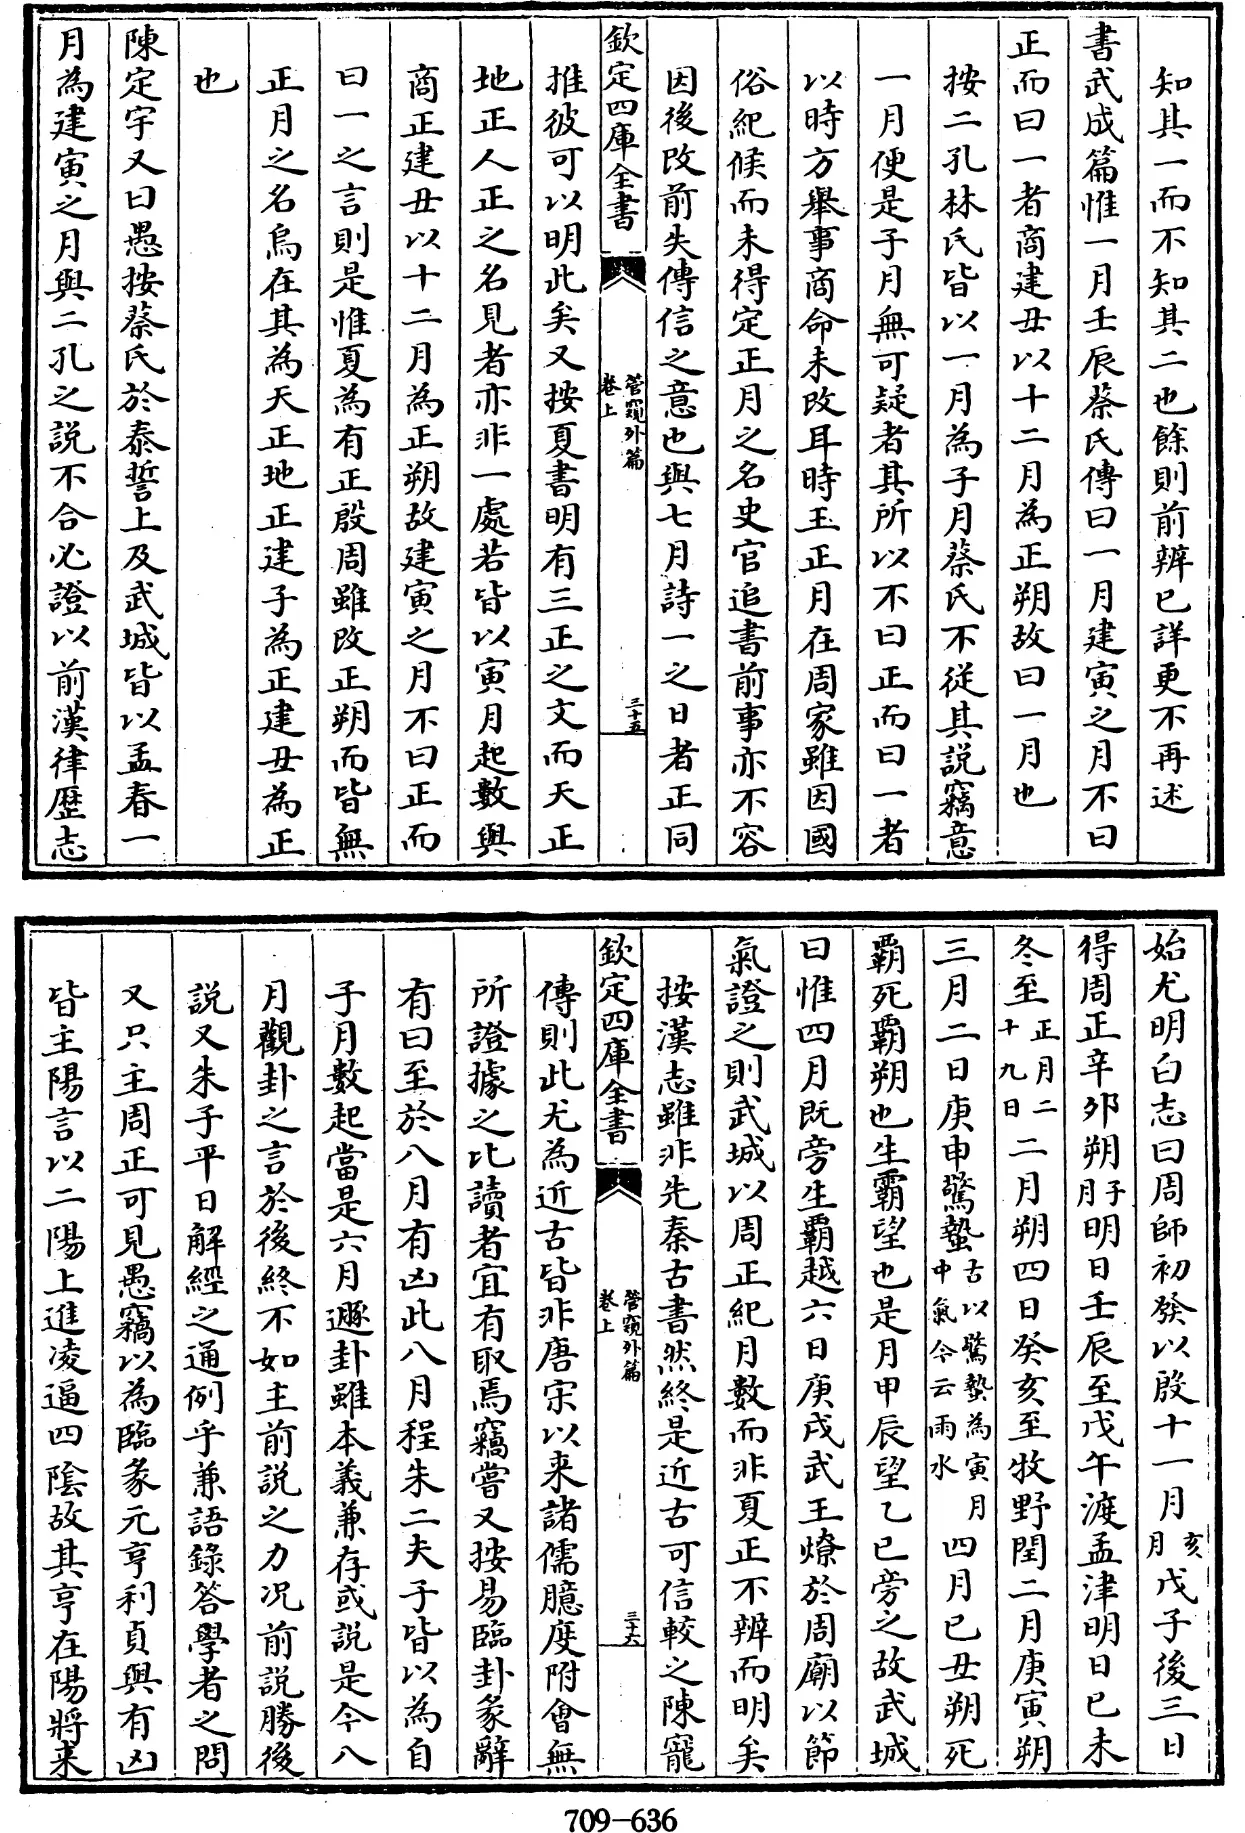 知其一而不知其二也餘則前辨已詳更不再述
書武成篇惟一月壬辰蔡氏傳曰一月建寅之月不曰
正而曰一者商建丑以十二月為正朔故曰一月也
按二孔林氏皆以一月為子月蔡氏不從其説竊意
一月便是子月無可疑者其所以不曰正而曰一者
以時方舉事商命未改耳時王正月在周家雖因國
俗紀候而未得定正月之名史官追書前事亦不容
因後改前失傳信之意也與七月詩一之日者正同
欽定四庫全書
管窺外篇
卷上
三十五
推彼可以明此矣又按夏書明有三正之文而天正
地正人正之名見者亦非一處若皆以寅月起數與
商正建丑以十二月為正朔故建寅之月不曰正而
曰一之言則是惟夏為有正殷周雖改正朔而皆無
正月之名烏在其為天正地正建子為正建丑為正
也
陳定宇又曰愚按蔡氏於泰誓上及武城皆以孟春一
月為建寅之月與二孔之説不合必證以前漢律歷志
始尤明白志曰周師初發以殷十一月亥月戊子後三日
得周正辛夘朔子月明日壬辰至戊午渡孟津明日已未
冬至正月二十九日二月朔四日癸亥至牧野閏二月庚寅朔
三月二日庚申驚蟄古以驚蟄為寅月中氣今云雨水四月已丑朔死
霸死霸朔也生霸望也是月甲辰望乙已旁之故武城
曰惟四月既旁生霸越六日庚戌武王燎於周廟以節
氣證之則武城以周正紀月數而非夏正不辨而明矣
按漢志雖非先秦古書然終是近古可信較之陳寵
欽定四庫全書
管窺外篇
卷上
三十六
傳則此尤為近古皆非唐宋以来諸儒臆度附會無
所證據之比讀者宜有取焉竊嘗又按易臨卦彖辭
有曰至於八月有凶此八月程朱二夫子皆以為自
子月數起當是六月遯卦雖本義兼存或説是今八
月觀卦之言於後終不如主前説之力况前説勝後
説又朱子平日解經之通例乎兼語錄答學者之問
又只主周正可見愚竊以為臨彖元亨利貞與有凶
皆主陽言以二陽上進凌逼四陰故其亨在陽將来
709-636